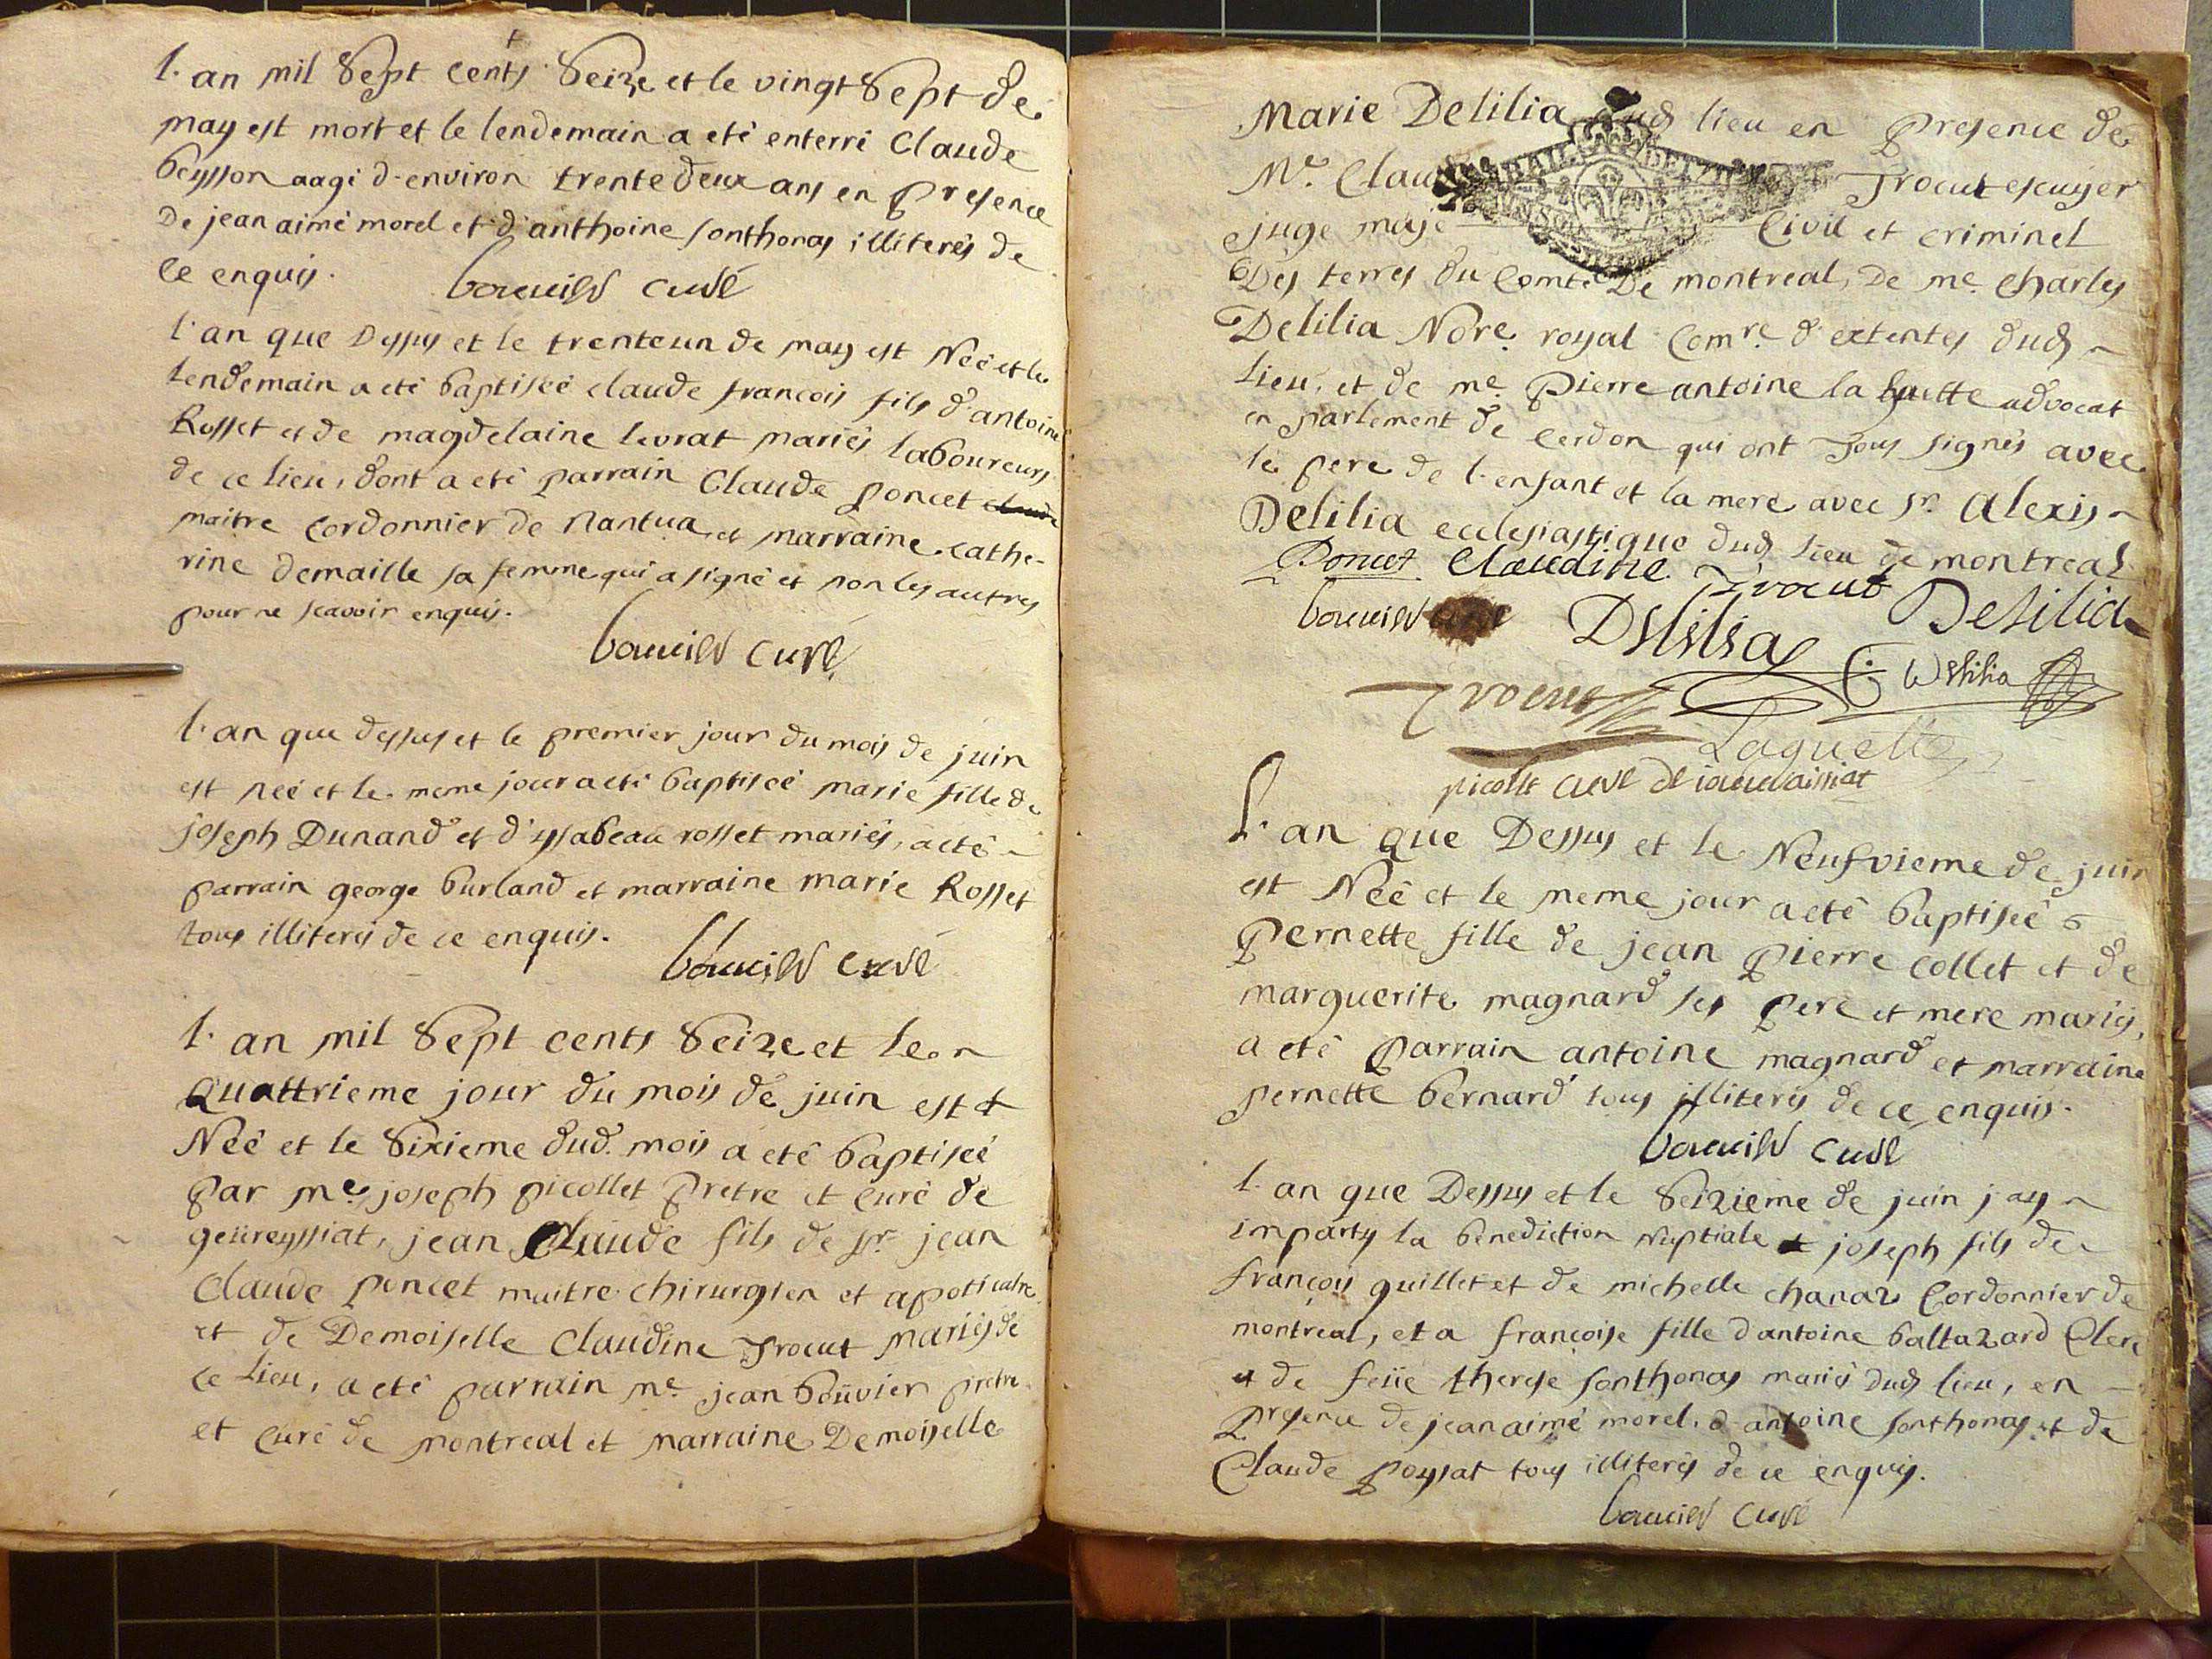 l'an mil Sept cents Seize et le vingt Sept de
may est mort et le lendemain a eté enterré Claude
beysson aagé d'environ trente deux ans en presence
De jean aimé morel et d'anthoine sonthonas illiterés de
ce enquis. bouvier curé
l'an que Dessus et le trenteun de may est Néé et le
lendemain a eté baptiséé claude françois fils d'antoine
Rosset et de magdelaine levrat mariés laboureurs
de ce lieu, dont a eté parrain Claude poncet
maitre Cordonnier de Nantua et marraine cathe-
rine demaille sa femme qui a signé et non les autres
pour ne scavoir enquis.
bouvier curé
l'an que dessus et le premier jour du mois de juin
est néé et le meme jour a eté baptiséé marie fille de
joseph Dunand et d'yssabeau rosset mariés, a eté
parrain george burland et marraine marie Rosset
tous illiterés de ce enquis.
bouvier curé
l'an mil Sept cents Seize et le
quattrieme jour du mois de juin est
Néé et le Sixieme dud. mois a eté baptiséé
par me. joseph picollet pretre et curé de
geüreyssiat, jean Claude fils de sr. jean
Claude poncet maitre chirurgien et apoticaire
et de Demoiselle Claudine Trocut mariés de
ce Lieu, a eté parrain me. jean boüvier pretre
et curé de montreal et marraine Demoiselle
Marie Delilia dud lieu en presence de
Me. Clau Trocut escuyer
juge maje Civil et criminel
Des terres du Comté De montreal, De me. Charles
Delilia Nore. royal Comre. d'extentes dud
Lieu, et de me. Pierre antoine la guette advocat
en parlement de Cerdon qui ont Tous signés avec
le pere de l'enfant et la mere avec sr. Alexis
Delilia ecclesiastique dud lieu de montreal
Poncet Claudine Trocut Delilia
bouvier Delilia
Delilia
Trocut
Laguette
picollet curé de
l'an que Dessus et le Neufvieme de juin
est Néé et le meme jour a eté baptiséé
Pernette fille de jean Pierre Collet et de
marguerite magnard ses Pere et mere mariés,
a eté Parrain antoine magnard et marraine
pernette bernard tous illiterés de ce enquis.
bouvier curé
l'an que Dessus et le Seizieme de juin j'ay
imparty la benediction nuptiale a joseph fils de
françois guillet et de michelle chanaz Cordonnier de
montreal, et a françoise fille d'antoine baltazard Clerc
et de feüe therese sonthonas mariés dud lieu, en
presence de jean aimé morel, d'antoine sonthonas et de
Claude poysat tous illiterés de ce enquis.
bouvier curé